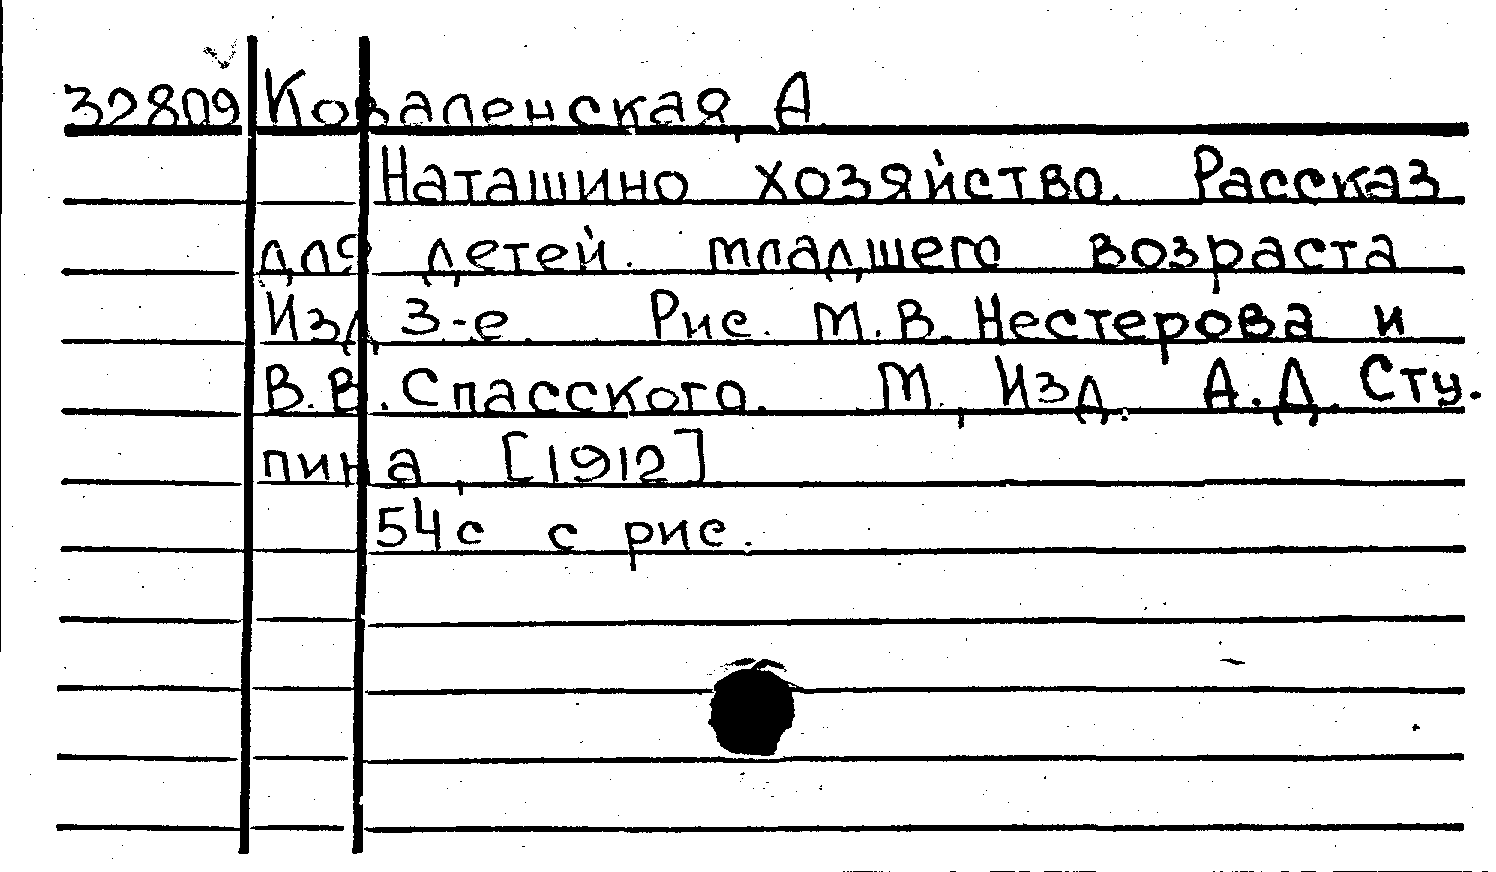 32809 Коваленская, А
Наташино хозяйство. Рассказ
для детей. младшего возраста
Изд, 3-е. Рис. М.В. Нестерова и
В.В. Спасского. М., Изд. А.Д. Сту.
пина, [1912]
54с с рис.